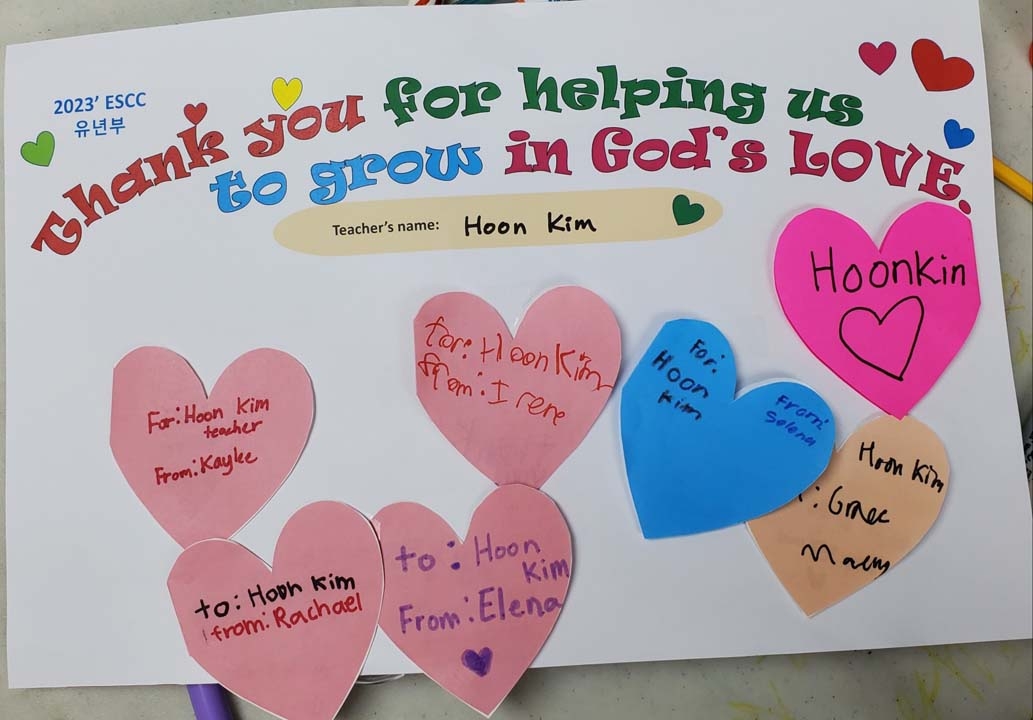 2023' ESCC
유년부
Thank you for helping us
to grow in God's LOVE.
Teacher's name: Hoon Kim
HoonKin
For: Hoon Kim
teacher
From: Kaylee
for: Hoon Kim
from: Irene
For:
Hoon
Kim
From:
Selena
Hoon Kim
: Grace
to: Hoon Kim
from: Rachael
to: Hoon
Kim
From: Elena